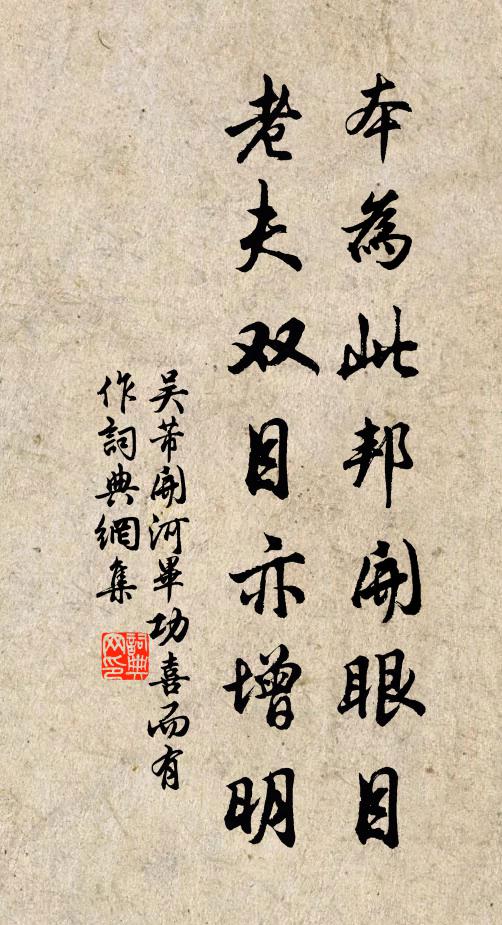 本為此邦開眼目
老夫双目亦增明
吴芾開河畢功喜而有
作詞典網集
詞典網印